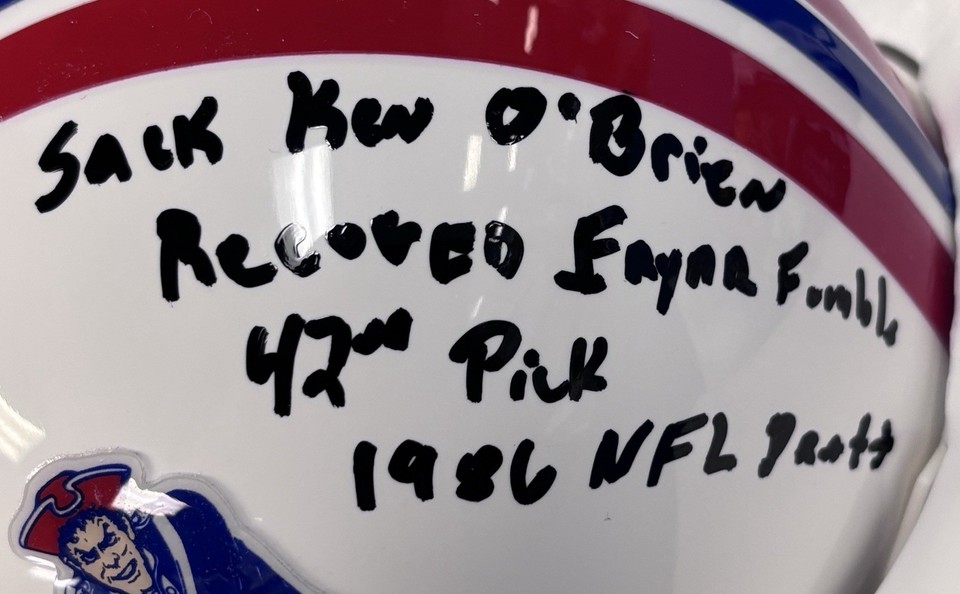 Sack Ken O'Brien
Recoved Iryar Fumble
42nd Pick
1986 NFL Draft